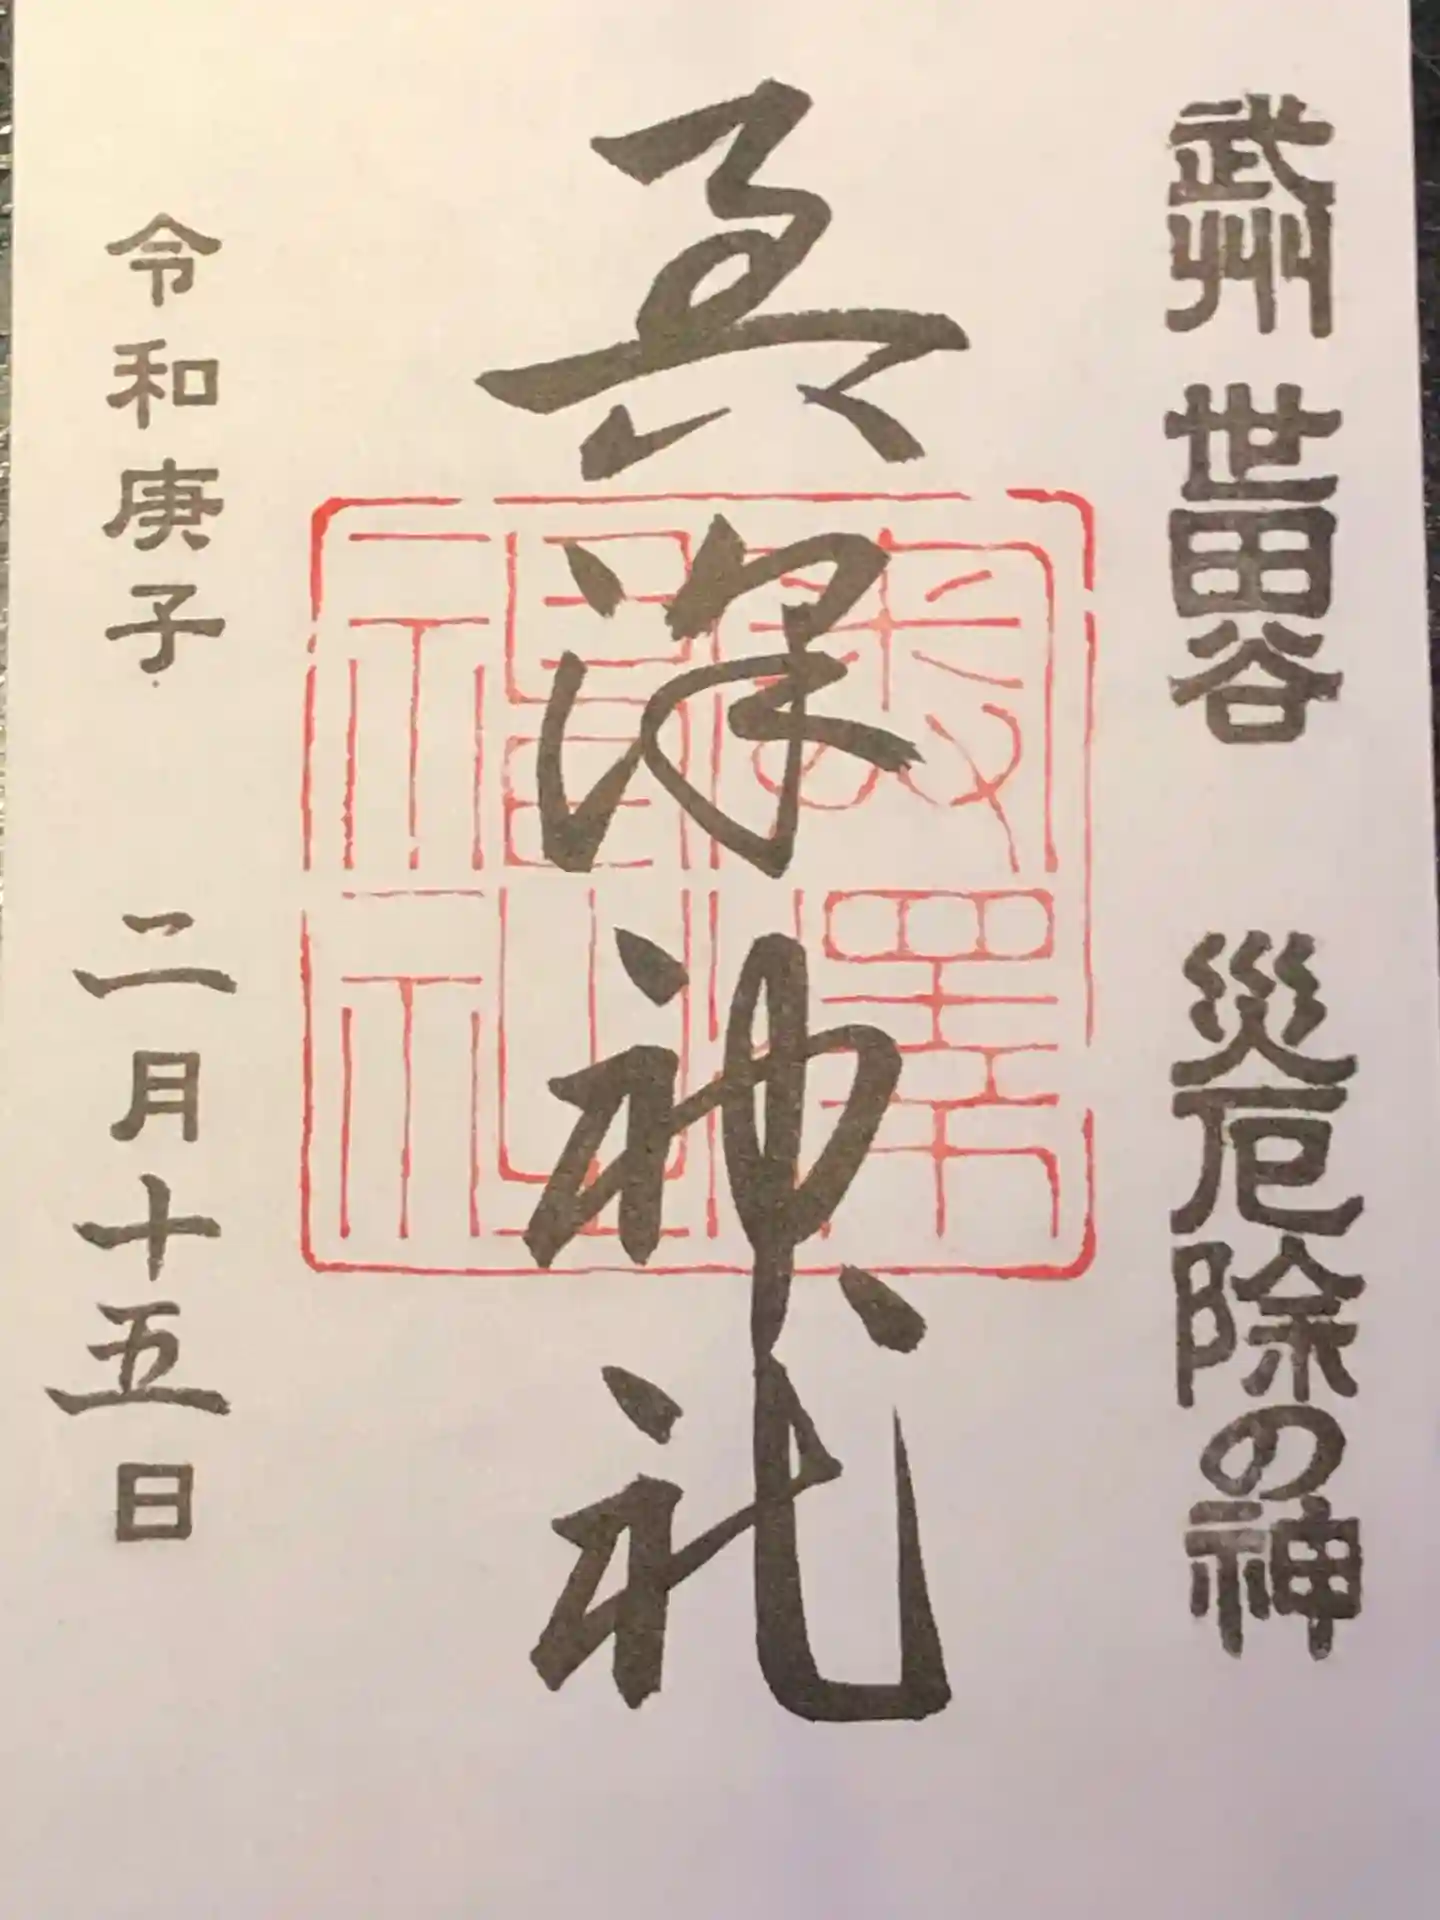 武州 世田谷 災厄除の神
奥澤神社
奥澤神社
令和庚子 二月十五日